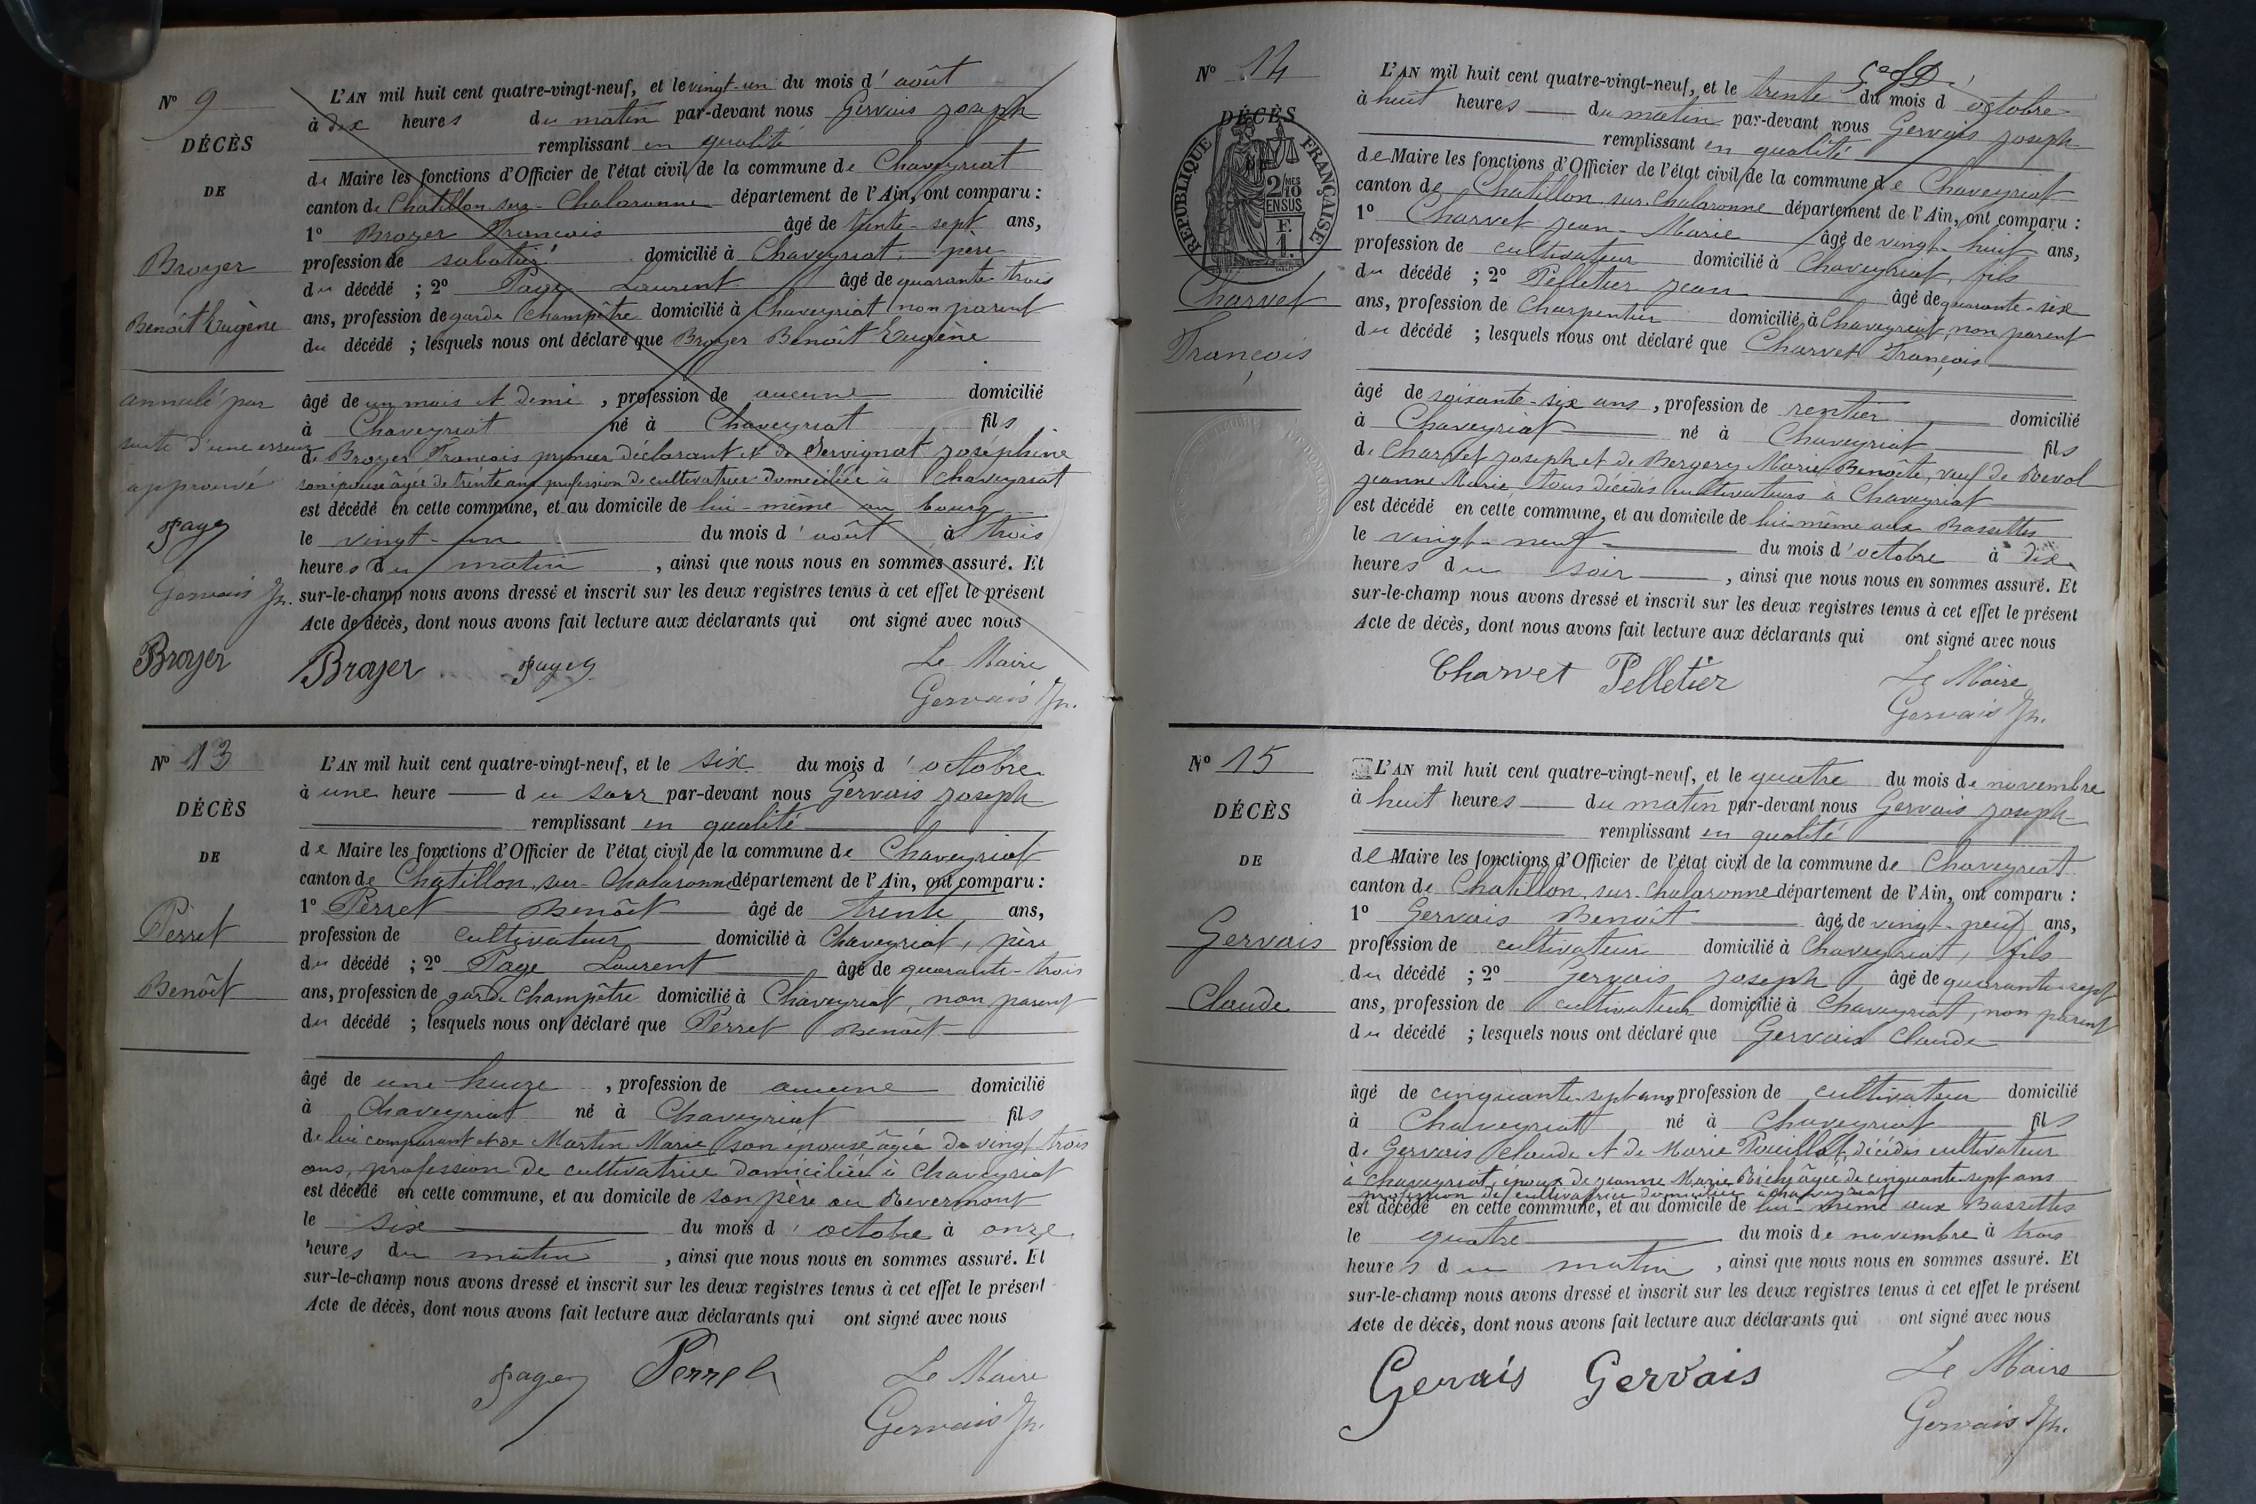 Nº 9
DÉCÈS
DE
Broyer
Benoît Eugène
annulé par
suite d'une erreur
approuvé
Page
Gervais Jh.
Broyer
L'AN mil huit cent quatre-vingt-neuf, et le vingt-un du mois d'août
à dix heures du matin par-devant nous Gervais Joseph
remplissant en qualité
de Maire les fonctions d'Officier de l'état civil de la commune de Chaveyriat
canton de Chatillon-sur-Chalaronne département de l'Ain, ont comparu :
1º Broyer François âgé de trente-sept ans,
profession de sabotier domicilié à Chaveyriat, père
du décédé ; 2º Page Laurent âgé de quarante-trois
ans, profession de garde Champêtre domicilié à Chaveyriat non parent
du décédé ; lesquels nous ont déclaré que Broyer Benoît Eugène
âgé de un mois et demi, profession de aucune domicilié
à Chaveyriat né à Chaveyriat fils
de Broyer François premier déclarant et de Servignat Joséphine
son épouse âgée de trente ans profession de cultivatrice domiciliée à Chaveyriat
est décédé en cette commune, et au domicile de lui-même au bourg
le vingt-un du mois d'août à trois
heures du matin, ainsi que nous nous en sommes assuré. Et
sur-le-champ nous avons dressé et inscrit sur les deux registres tenus à cet effet le présent
Acte de décès, dont nous avons fait lecture aux déclarants qui ont signé avec nous
Broyer Page Le Maire
Gervais Jh.
Nº 13
DÉCÈS
DE
Perret
Benoît
L'AN mil huit cent quatre-vingt-neuf, et le six du mois d'octobre
à une heure du soir par-devant nous Gervais Joseph
remplissant en qualité
de Maire les fonctions d'Officier de l'état civil de la commune de Chaveyriat
canton de Chatillon-sur-Chalaronne département de l'Ain, ont comparu :
1º Perret Benoît âgé de trente ans,
profession de cultivateur domicilié à Chaveyriat, père
du décédé ; 2º Page Laurent âgé de quarante-trois
ans, profession de garde Champêtre domicilié à Chaveyriat, non parent
du décédé ; lesquels nous ont déclaré que Perret Benoît
âgé de une heure, profession de aucune domicilié
à Chaveyriat né à Chaveyriat fils
de lui comparant et de Martin Marie son épouse âgée de vingt-trois
ans, profession de cultivatrice domiciliée à Chaveyriat
est décédé en cette commune, et au domicile de son père au Revermont
le six du mois d'octobre à onze
heures du matin, ainsi que nous nous en sommes assuré. Et
sur-le-champ nous avons dressé et inscrit sur les deux registres tenus à cet effet le présent
Acte de décès, dont nous avons fait lecture aux déclarants qui ont signé avec nous
Page Perret Le Maire
Gervais Jh.
Nº 14
DÉCÈS
RÉPUBLIQUE FRANÇAISE
2/10 MES
EN SUS
F.
1.
Charvet
François
L'AN mil huit cent quatre-vingt-neuf, et le trente du mois d'octobre
à huit heures du matin par-devant nous Gervais Joseph
remplissant en qualité
de Maire les fonctions d'Officier de l'état civil de la commune de Chaveyriat
canton de Chatillon-sur-Chalaronne département de l'Ain, ont comparu :
1º Charvet Jean-Marie âgé de vingt-huit ans,
profession de cultivateur domicilié à Chaveyriat, fils
du décédé ; 2º Pelletier Jean âgé de quarante-six
ans, profession de Charpentier domicilié à Chaveyriat, non parent
du décédé ; lesquels nous ont déclaré que Charvet François
âgé de soixante-six ans, profession de rentier domicilié
à Chaveyriat né à Chaveyriat fils
de Charvet Joseph et de Bergery Marie-Benoîte, veuf de Revol
Jeanne Marie tous décédés cultivateurs à Chaveyriat
est décédé en cette commune, et au domicile de lui-même aux Bassettes
le vingt-neuf du mois d'octobre à dix
heures du soir, ainsi que nous nous en sommes assuré. Et
sur-le-champ nous avons dressé et inscrit sur les deux registres tenus à cet effet le présent
Acte de décès, dont nous avons fait lecture aux déclarants qui ont signé avec nous
Charvet Pelletier Le Maire
Gervais Jh.
Nº 15
DÉCÈS
DE
Gervais
Claude
L'AN mil huit cent quatre-vingt-neuf, et le quatre du mois de novembre
à huit heures du matin par-devant nous Gervais Joseph
remplissant en qualité
de Maire les fonctions d'Officier de l'état civil de la commune de Chaveyriat
canton de Chatillon-sur-Chalaronne département de l'Ain, ont comparu :
1º Gervais Benoît âgé de vingt-neuf ans,
profession de cultivateur domicilié à Chaveyriat, fils
du décédé ; 2º Gervais Joseph âgé de quarante-sept
ans, profession de cultivateur domicilié à Chaveyriat, non parent
du décédé ; lesquels nous ont déclaré que Gervais Claude
âgé de cinquante-sept ans profession de cultivateur domicilié
à Chaveyriat né à Chaveyriat fils
de Gervais Claude et de Marie Pouillat, décédés cultivateur
à Chaveyriat, époux de Jeanne Marie âgée de cinquante-sept ans
profession de cultivatrice domiciliée à Chaveyriat
est décédé en cette commune, et au domicile de lui-même aux Bassettes
le quatre du mois de novembre à trois
heures du matin, ainsi que nous nous en sommes assuré. Et
sur-le-champ nous avons dressé et inscrit sur les deux registres tenus à cet effet le présent
Acte de décès, dont nous avons fait lecture aux déclarants qui ont signé avec nous
Gervais Gervais Le Maire
Gervais Jh.